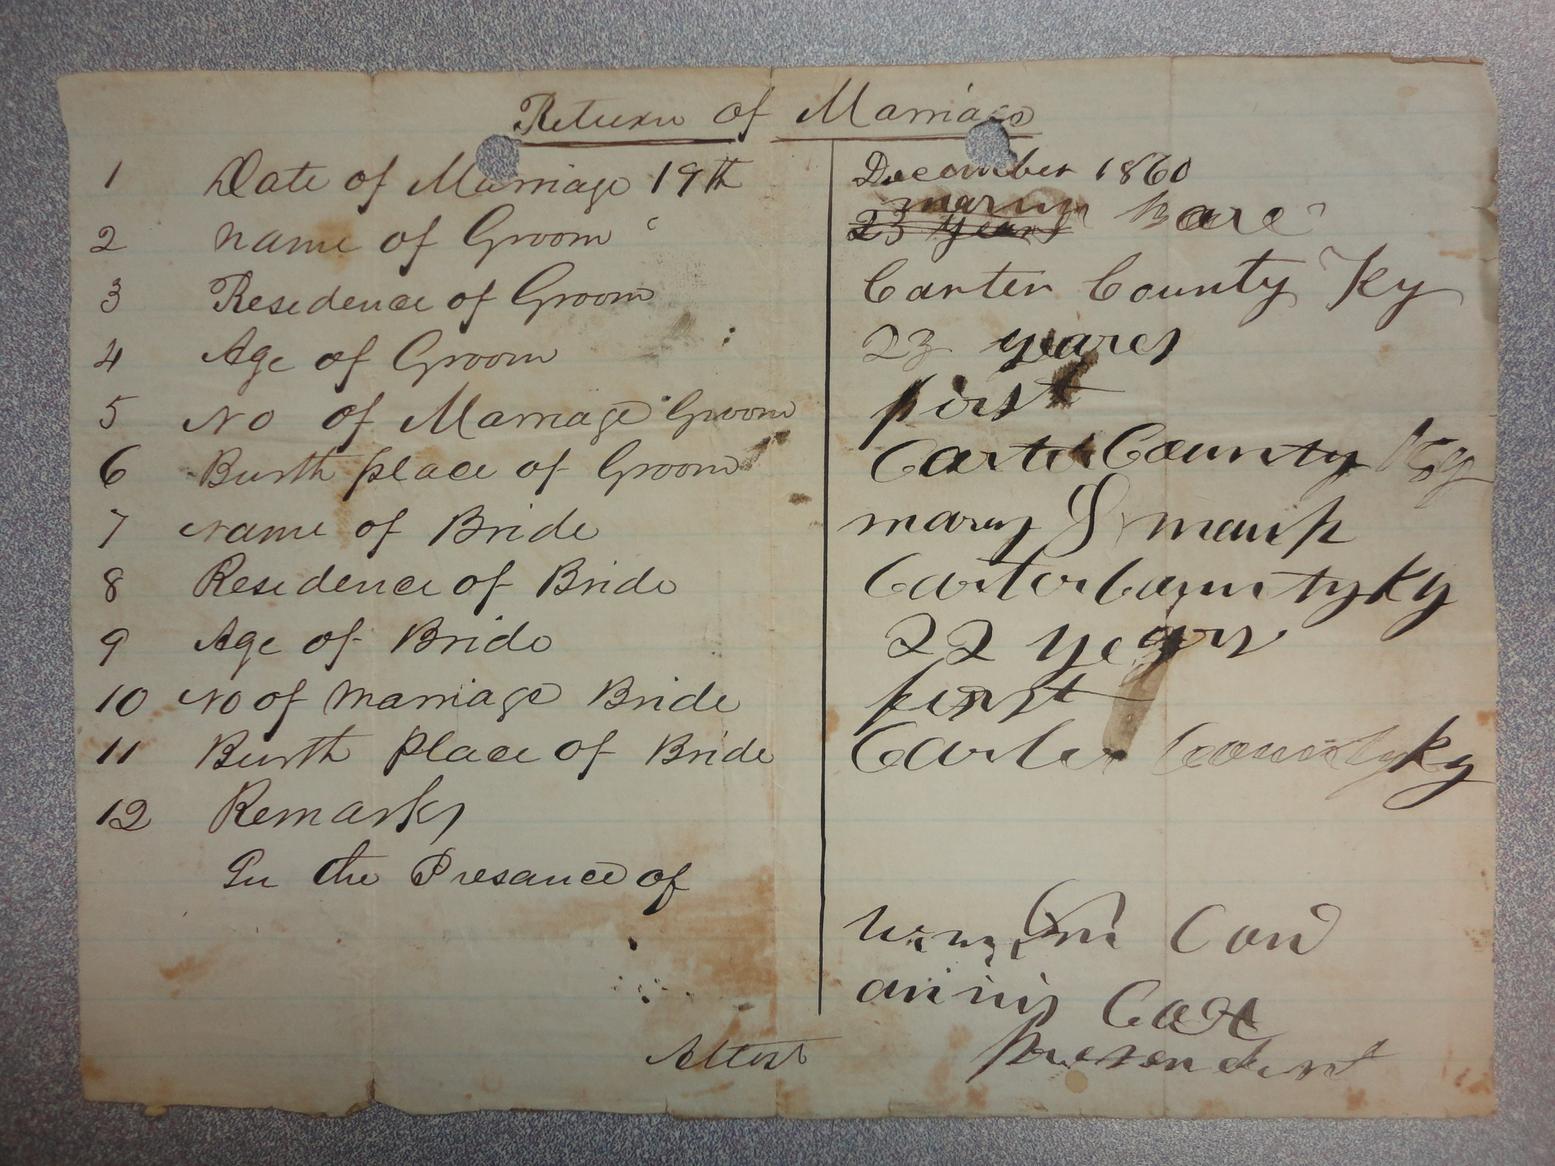 Return of Marriage
1 Date of Marriage 19th December 1860
2 Name of Groom 23 years hare
3 Residence of Groom Carter County Ky
4 Age of Groom 23 yeares
5 No of Marriage Groom first
6 Burth place of Groom Carter County Ky
7 Name of Bride mary
8 Residence of Bride Carter County Ky
9 Age of Bride 22 years
10 No of Marriage Bride first
11 Burth Place of Bride Carter County ky
12 Remarks
In the Presance of
Attest